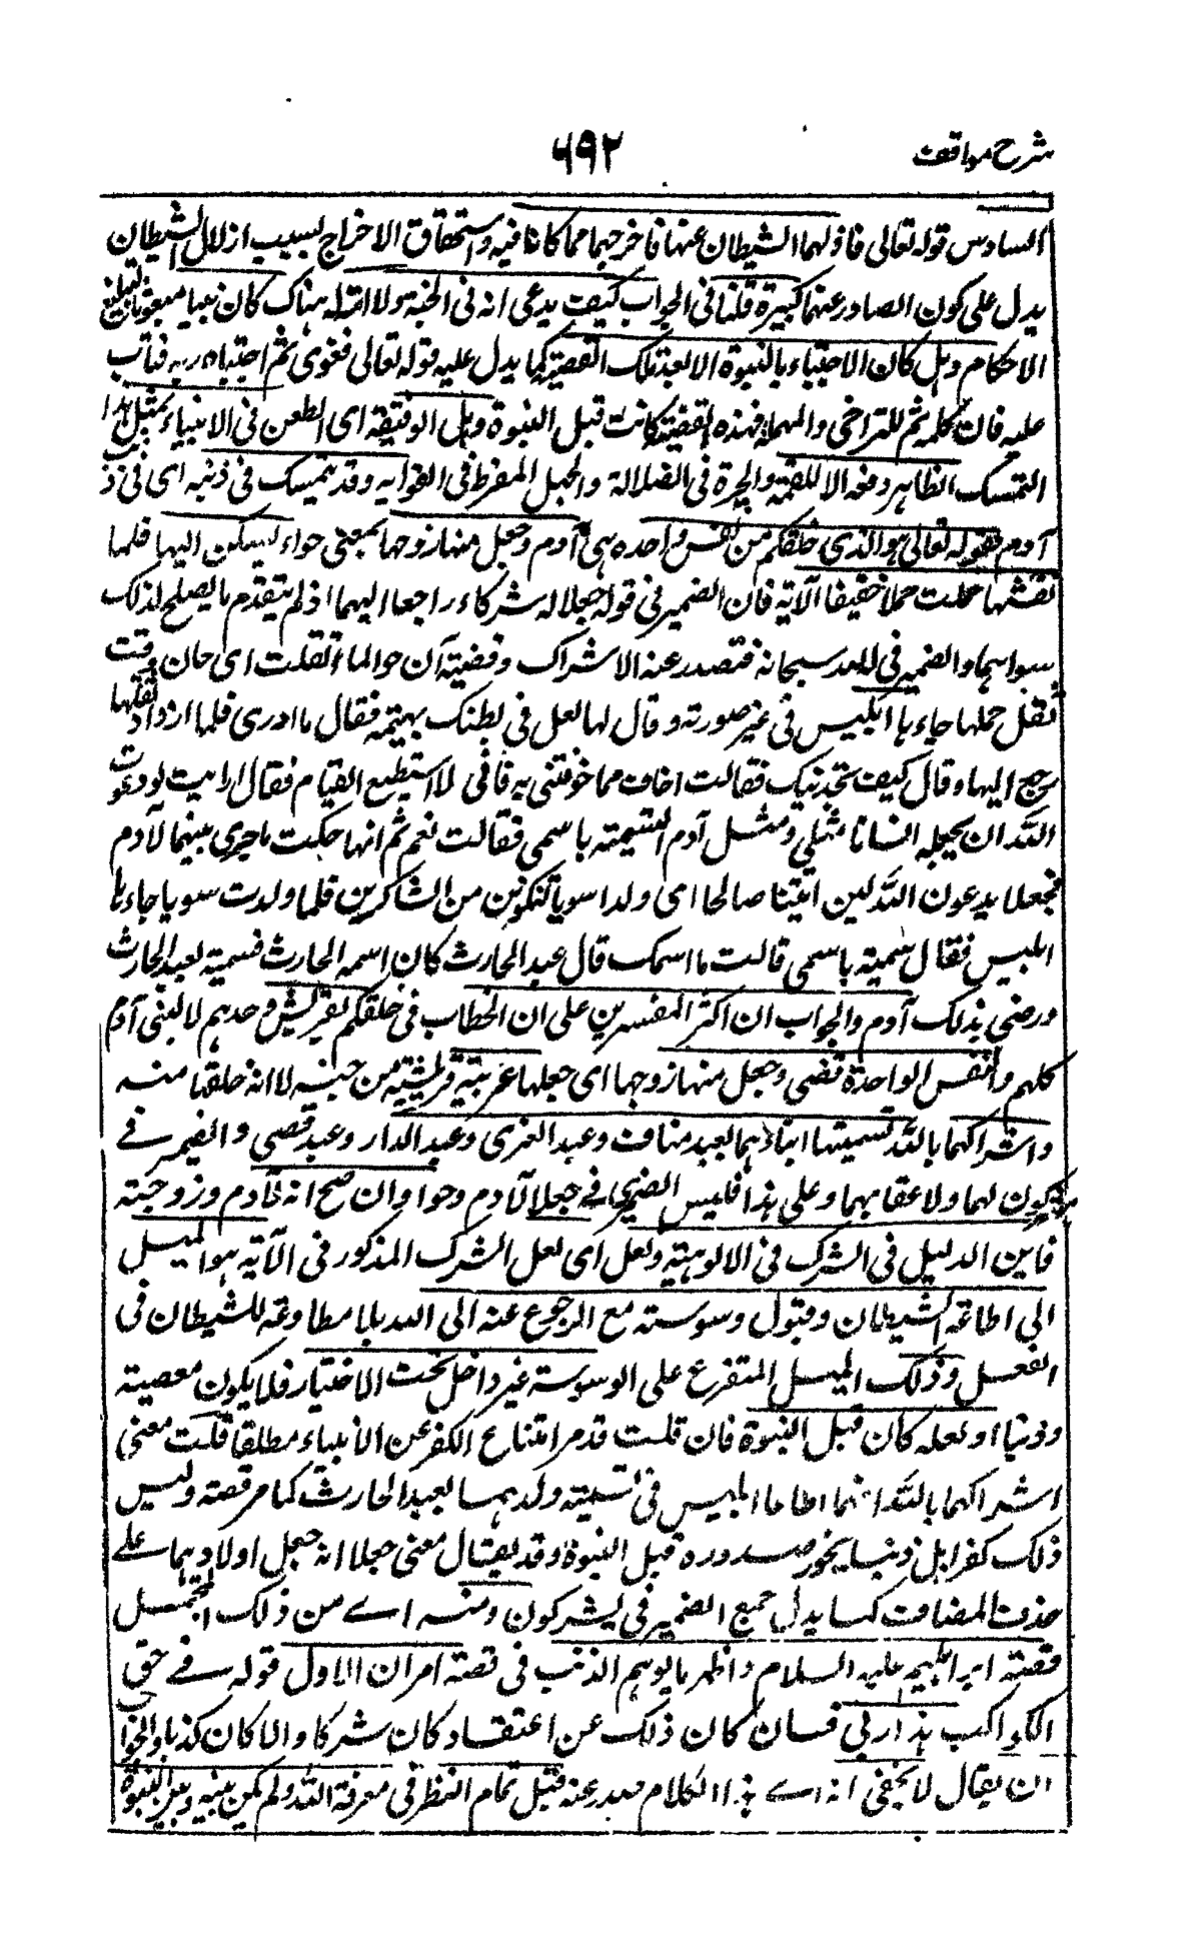 شرح مواقف
٦٩٢
السادس قوله تعالى فازلهما الشيطان عنها فاخرجهما مما كانا فيه واستحقاق الاخراج بسبب ازلال الشيطان
يدل على كون الصادر عنهما كبيرة قلنا فى الجواب كيف يدعى انه فى الجنة ولا امة له هناك كان نبيا مبعوثا لتبليغ
الاحكام وهل كان الاجتباء بالنبوة الا بعد تلك القصة كما يدل عليه قوله تعالى فغوى ثم اجتباه ربه فتاب
عليه فان كلمة ثم للتراخى والمهلة فهذه القضية كانت قبل النبوة وهل الوقيقة اى الطعن فى الانبياء بمثل هذا
التمسك الظاهر دفعه الا للعمة والحيرة فى الضلالة والجهل المفرط فى الغوايه وقد يتمسك فى ذنبه اى فى ذنب
آدم بقوله تعالى هو الذى خلقكم من نفس واحده هى آدم وجعل منها زوجها يعنى حواء ليسكن اليها فلما
تغشها حملت حملا خفيفا الآية فان الضمير فى قوله جعلا له شركاء راجعا اليهما اذ لم يتقدم ما يصلح لذلك
سواهما والضمير فى له لله سبحانه فتصدر عنه الاشراك وقضيته ان حوا لما اثقلت اى حان وقت
ثقل حملها جاءها ابليس فى غير صورته وقال لها لعل فى بطنك بهيمة فقال ما ادرى فلما ازداد ثقلها
رجع اليها وقال كيف تجدينك فقالت اخاف مما خوفتنى به فانى لا استطيع القيام فقال ارايت لو دعوت
الله ان يجعله انسانا مثلى ومثل آدم اتسميته باسمى فقالت نعم ثم انها حكت ما جرى بينهما لآدم
فجعلا يدعون الله لئن اتيتنا صالحا اى ولدا سويا لنكونن من الشاكرين فلما ولدت سويا جاءها
ابليس فقال سميته باسمى قالت ما اسمك قال عبد الحارث كان اسمه الحارث فسمية بعبد الحارث
ورضى بذلك آدم والجواب ان اكثر المفسرين على ان الخطاب فى خلقكم لقريش وحدهم لا لبنى آدم
كلهم والنفس الواحدة قصى وجعل منها زوجها اى جعلها عربية قريشية من جنسه لا انه خلقها منه
واشراكهما بالله تسميتها ابناءهما بعبد مناف وعبد العزى وعبد الدار وعبد قصى والضمير فى
يشركون لهما ولاعقابهما وعلى هذا فليس الضمير فى جعلا لآدم وحوا وان صح انه لآدم وزوجته
فاين الدليل فى الشرك فى الالوهية ولعل اى لعل الشرك المذكور فى الآية هو الميل
الى اطاعة الشيطان وقبول وسوسته مع الرجوع عنه الى الله بلا مطاوعة للشيطان فى
الفعل وذلك الميل المتفرع على الوسوسة غير داخل تحت الاختيار فلا يكون معصية
وذنبا او لعله كان قبل النبوة فان قلت قد مر امتناع الكفر عن الانبياء مطلقا قلت معنى
اشراكهما بالله انهما اطاعا ابليس فى تسمية ولدهما بعبد الحارث كما مر قصته وليس
ذلك كفرا بل ذنبا يجوز صدوره قبل النبوة وقد يقال معنى جعلا انه جعل اولادهما على
حذف المضاف كما يدل جمع الضمير فى يشركون ومنه اے من ذلك المجمل
قصة ابراهيم عليه السلام واظهر ما يوهم الذنب فى قصة امران الاول قوله فى حق
الكواكب هذا ربى فان كان ذلك عن اعتقاد كان شركا والا كان كذبا والجواب
ان يقال لا يخفى انه اے هذا الكلام صدر عنه قبل تمام النظر فى معرفة الله ولم يكن بينه وبين النبوة